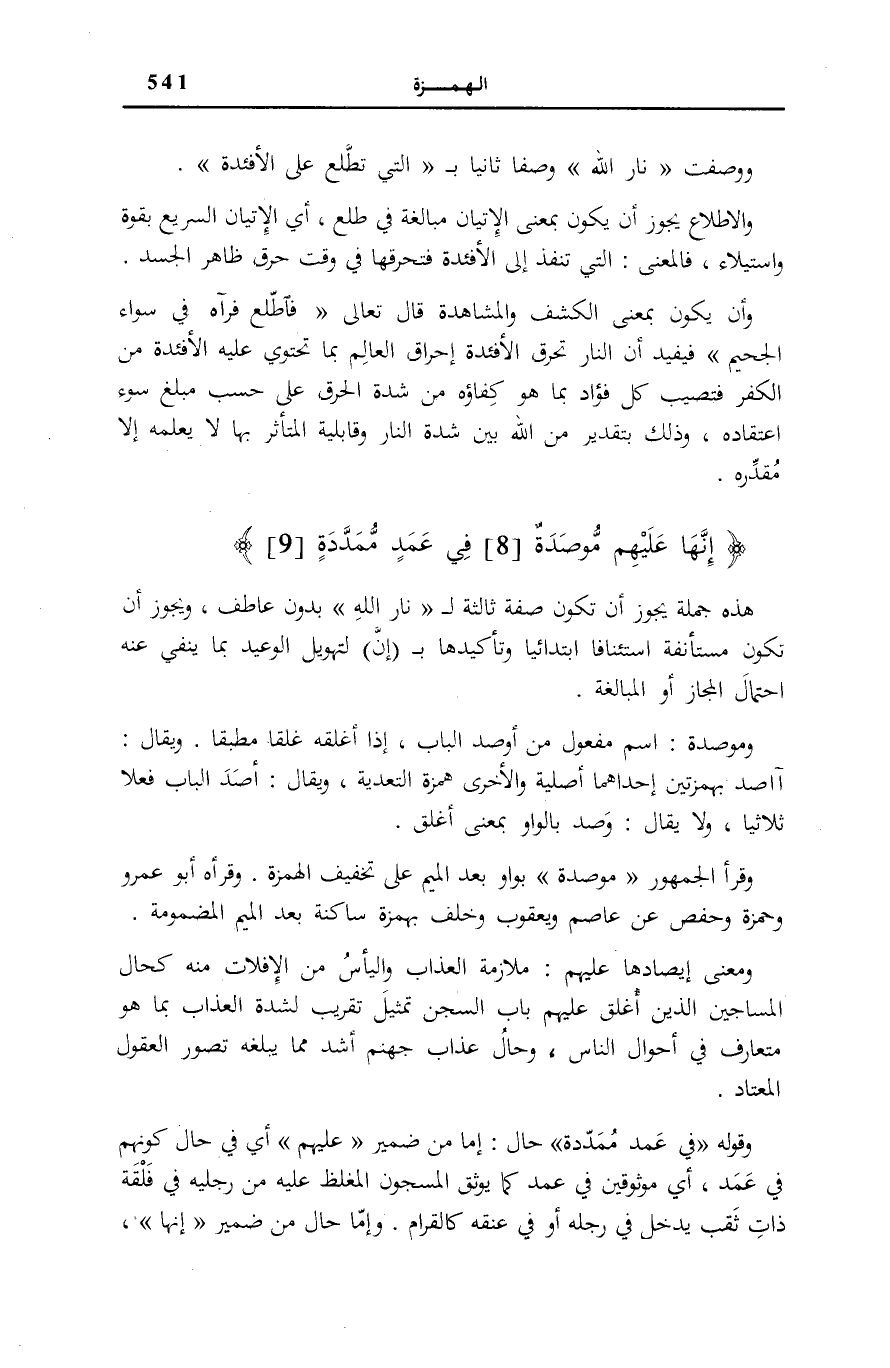 الـهـمـــزة 541
ووصفت « نار الله » وصفا ثانيا بـ « التي تطَّلع على الأفئدة » .
والاطلاع يجوز أن يكون بمعنى الإتيان مبالغة في طلع ، أي الإتيان السريع بقوة
واستيلاء ، فالمعنى : التي تنفذ إلى الأفئدة فتحرقها في وقت حرق ظاهر الجسد .
وأن يكون بمعنى الكشف والمشاهدة قال تعالى « فآطّلع فرآه في سواء
الجحيم » فيفيد أن النار تحرق الأفئدة إحراق العالِم بما تحتوي عليه الأفئدة من
الكفر فتصيب كل فؤاد بما هو كِفاؤه من شدة الحرق على حسب مبلغ سوء
اعتقاده ، وذلك بتقدير من الله بين شدة النار وقابلية المتأثر بها لا يعلمه إلا
مُقدِّره .
﴿ إِنَّهَا عَلَيْهِم مُّوصَدَةٌ [8] فِي عَمَدٍ مُّمَدَّدَةٍ [9] ﴾
هذه جملة يجوز أن تكون صفة ثالثة لـ « نار اللهِ » بدون عاطف ، ويجوز أن
تكون مستأنفة استئنافا ابتدائيا وتأكيدها بـ (إنَّ) لتهويل الوعيد بما ينفي عنه
احتمالَ المجاز أو المبالغة .
وموصدة : اسم مفعول من أوصد الباب ، إذا أغلقه غلقا مطبقا . ويقال :
آاصد بهمزتين إحداهما أصلية والأخرى همزة التعدية ، ويقال : أصَدَ الباب فعلا
ثلاثيا ، ولا يقال : وَصد بالواو بمعنى أغلق .
وقرأ الجمهور « موصدة » بواو بعد الميم على تخفيف الهمزة . وقرأه أبو عمرو
وحمزة وحفص عن عاصم ويعقوب وخلف بهمزة ساكنة بعد الميم المضمومة .
ومعنى إيصادها عليهم : ملازمة العذاب واليأسُ من الإفلات منه كحال
المساجين الذين أُغلق عليهم باب السجن تمثيلَ تقريب لشدة العذاب بما هو
متعارف في أحوال الناس ، وحالُ عذاب جهنم أشد مما يبلغه تصور العقول
المعتاد .
وقوله «في عَمد مُمَدّدة» حال : إما من ضمير « عليهم » أي في حال كونهم
في عَمَد ، أي موثوقين في عمد كما يوثق المسجون المغلظ عليه من رجليه في فَلْقَة
ذاتِ ثَقب يدخل في رجله أو في عنقه كالقرام . وإمّا حال من ضمير « إنها » ،